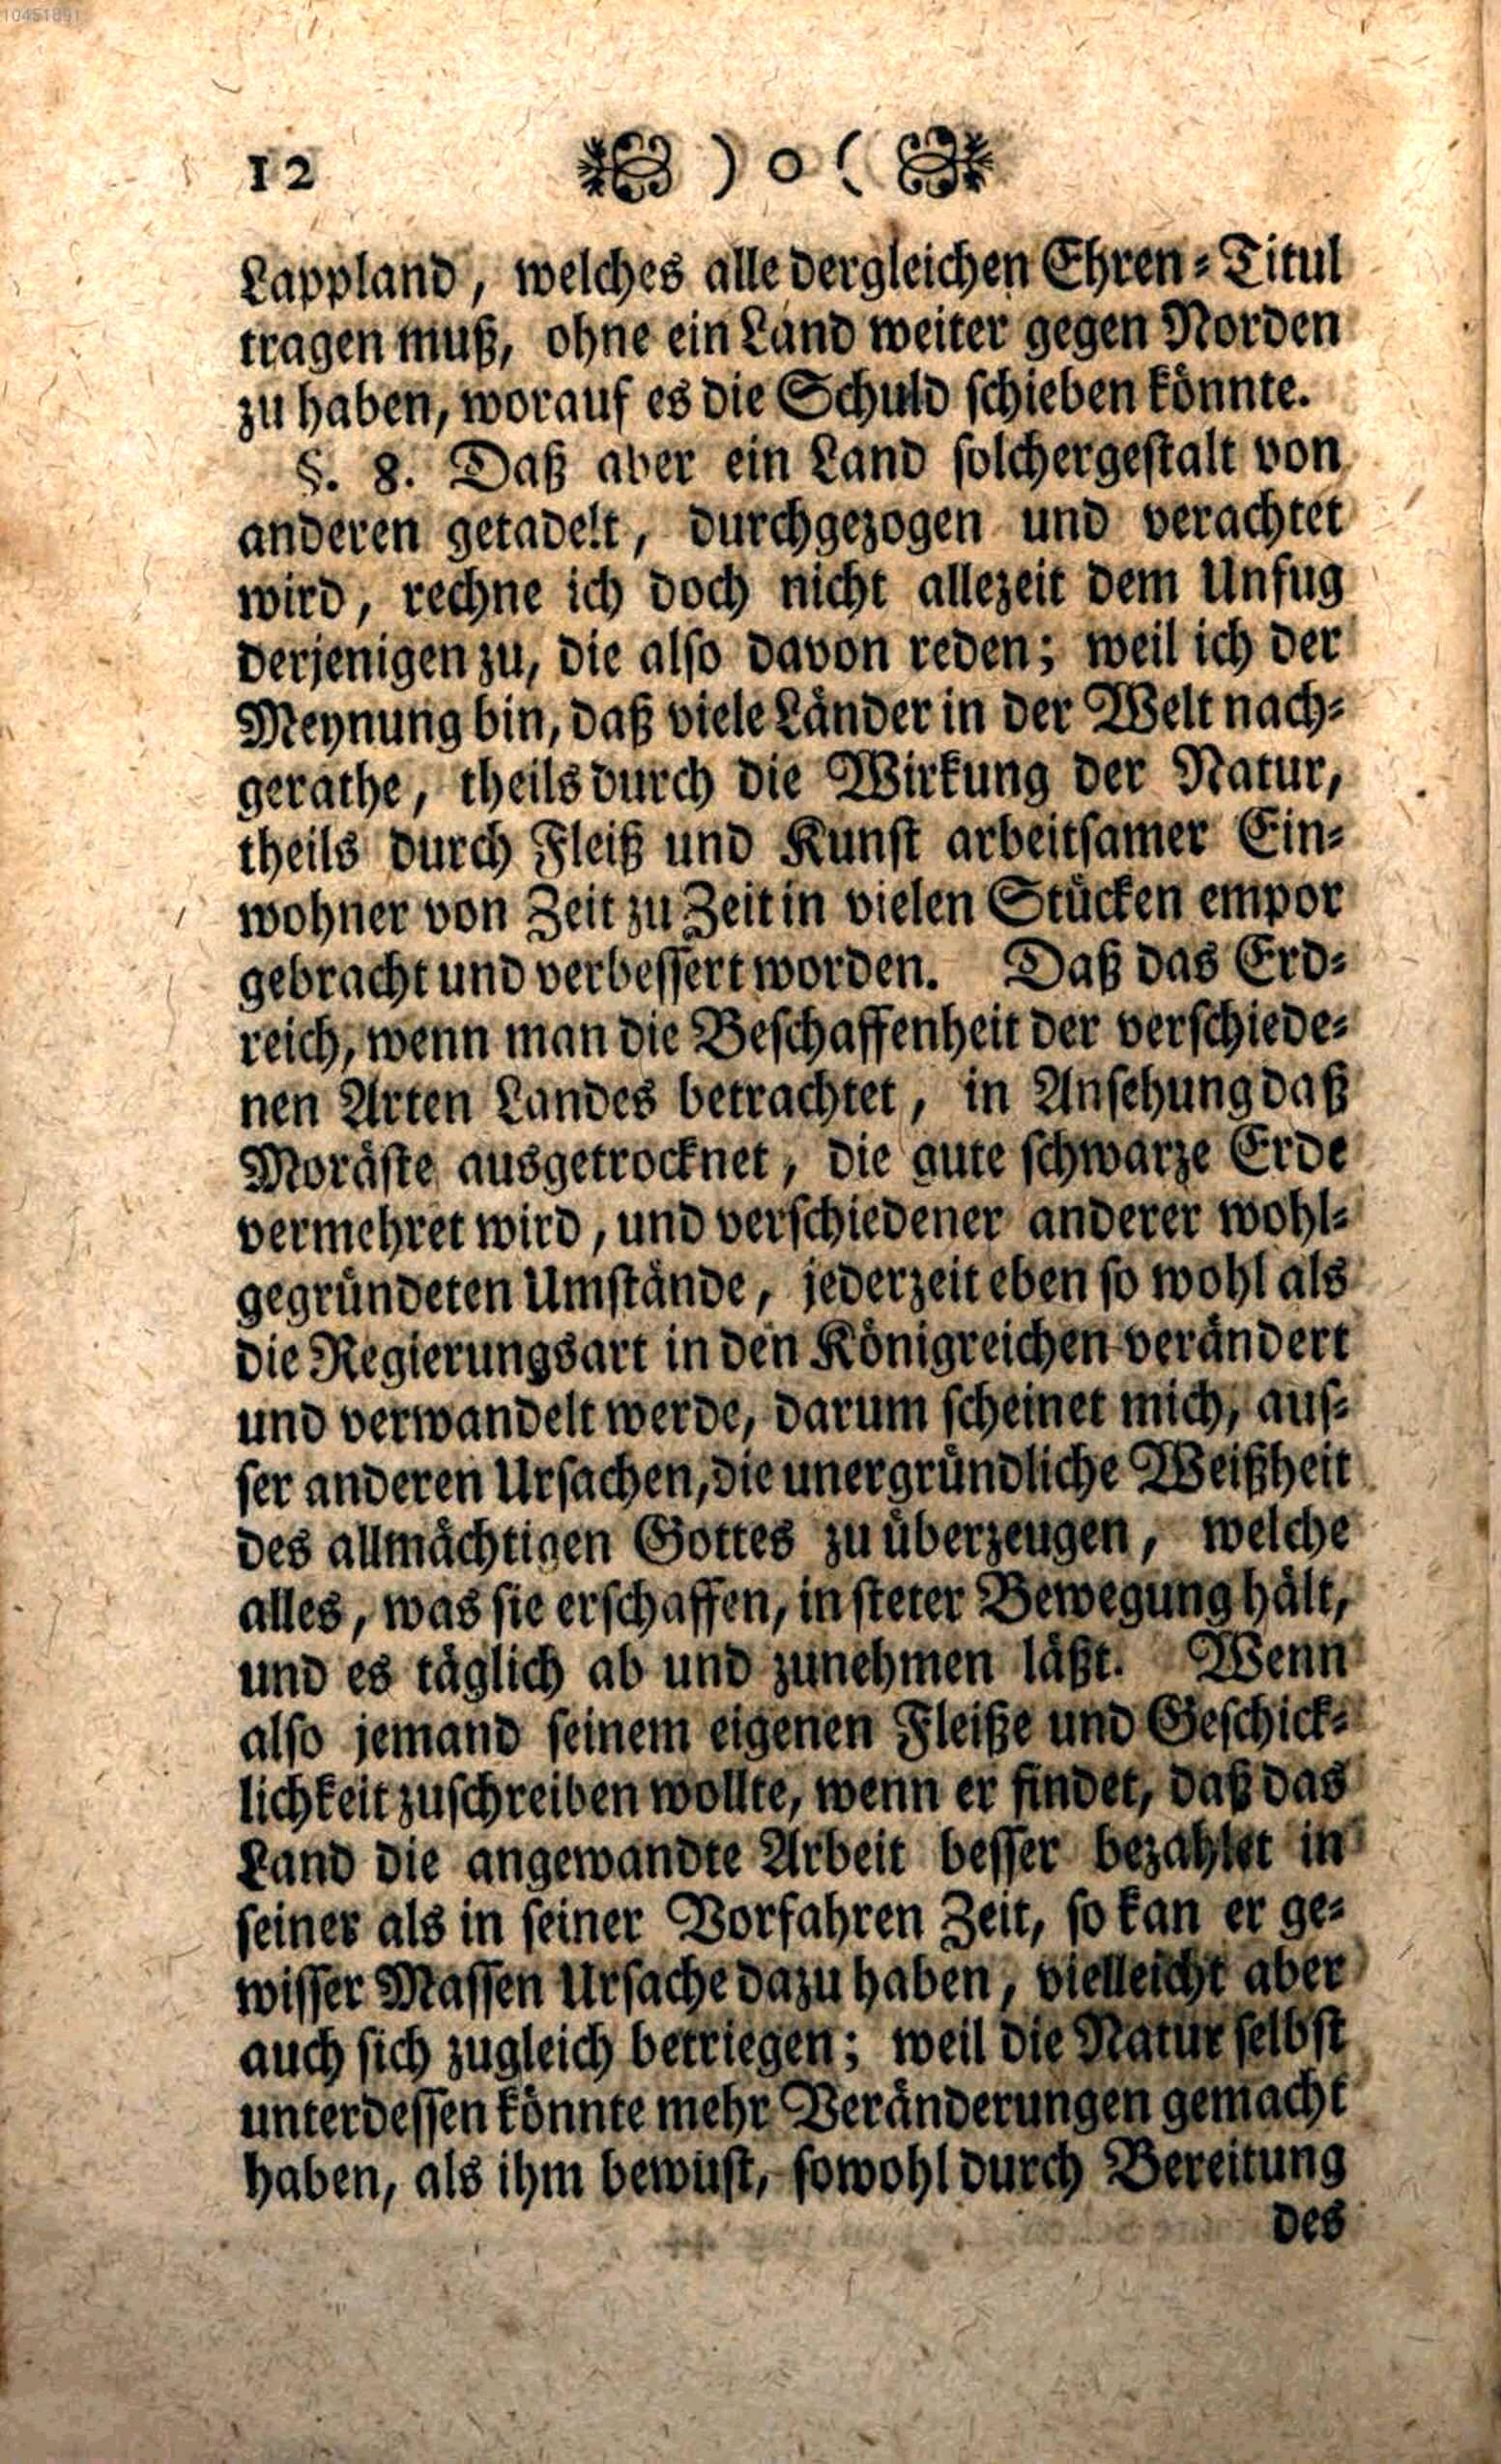 10451891
12 ) o (
Lappland, welches alle dergleichen Ehren-Titul
tragen muß, ohne ein Land weiter gegen Norden
zu haben, worauf es die Schuld schieben könnte.
§. 8. Daß aber ein Land solchergestalt von
anderen getadelt, durchgezogen und verachtet
wird, rechne ich doch nicht allezeit dem Unfug
derjenigen zu, die also davon reden; weil ich der
Meynung bin, daß viele Länder in der Welt nach-
gerathe, theils durch die Wirkung der Natur,
theils durch Fleiß und Kunst arbeitsamer Ein-
wohner von Zeit zu Zeit in vielen Stücken empor
gebracht und verbessert worden. Daß das Erd-
reich, wenn man die Beschaffenheit der verschiede-
nen Arten Landes betrachtet, in Ansehung daß
Moräste ausgetrocknet, die gute schwarze Erde
vermehret wird, und verschiedener anderer wohl-
gegründeten Umstände, jederzeit eben so wohl als
die Regierungsart in den Königreichen verändert
und verwandelt werde, darum scheinet mich, aus-
ser anderen Ursachen, die unergründliche Weißheit
des allmächtigen Gottes zu überzeugen, welche
alles, was sie erschaffen, in steter Bewegung hält,
und es täglich ab und zunehmen läßt. Wenn
also jemand seinem eigenen Fleiße und Geschick-
lichkeit zuschreiben wollte, wenn er findet, daß das
Land die angewandte Arbeit besser bezahlet in
seiner als in seiner Vorfahren Zeit, so kan er ge-
wisser Massen Ursache dazu haben, vielleicht aber
auch sich zugleich betriegen; weil die Natur selbst
unterdessen könnte mehr Veränderungen gemacht
haben, als ihm bewust, sowohl durch Bereitung
des